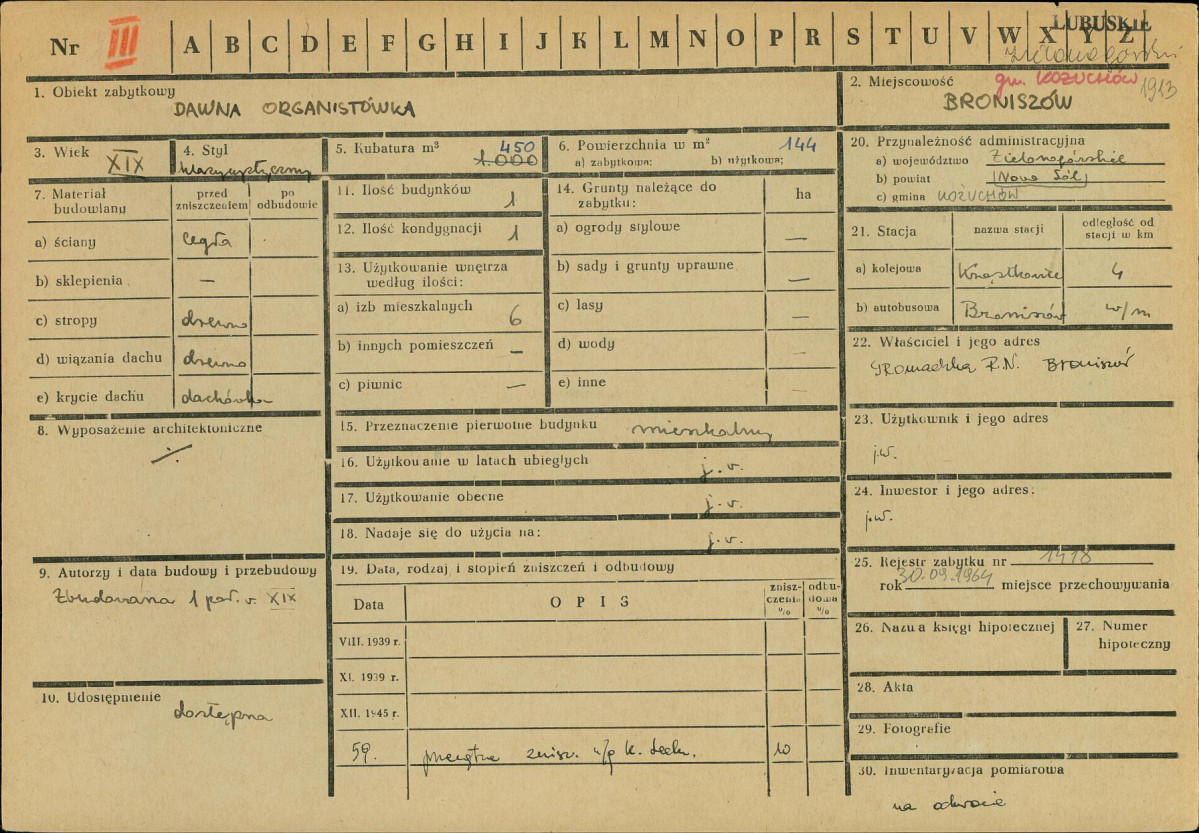 Nr III A B C D E F G H I J K L M N O P R S T U V W X Y Z
LUBUSKIE
Zielonogórski
gm. KOŻUCHÓW
1913
1. Obiekt zabytkowy
DAWNA ORGANISTÓWKA
2. Miejscowość
BRONISZÓW
3. Wiek
XIX
4. Styl
klasycystyczny
5. Kubatura m³
450
1.000
6. Powierzchnia w m²
144
a) zabytkowa: b) użytkowa:
7. Materiał budowlany
przed zniszczeniem
po odbudowie
a) ściany cegła
b) sklepienia —
c) stropy drewno
d) wiązania dachu drewno
e) krycie dachu dachówka
8. Wyposażenie architektoniczne
9. Autorzy i data budowy i przebudowy
Zbudowana 1 poł. w. XIX
10. Udostępnienie
dostępna
11. Ilość budynków 1
12. Ilość kondygnacji 1
13. Użytkowanie wnętrza według ilości:
a) izb mieszkalnych 6
b) innych pomieszczeń —
c) piwnic —
14. Grunty należące do zabytku:
ha
a) ogrody stylowe —
b) sady i grunty uprawne —
c) lasy —
d) wody —
e) inne —
15. Przeznaczenie pierwotne budynku mieszkalny
16. Użytkowanie w latach ubiegłych j.w.
17. Użytkowanie obecne j.w.
18. Nadaje się do użycia na: j.w.
19. Data, rodzaj i stopień zniszczeń i odbudowy
Data
OPIS
zniszczenia %
odbudowa %
VIII. 1939 r.
XI. 1939 r.
XII. 1945 r.
59. przeciętne zniszcz. w/g k. tech. 10
20. Przynależność administracyjna
a) województwo Zielonogórskie
b) powiat (Nowa Sól)
c) gmina KOŻUCHÓW
21. Stacja
nazwa stacji
odległość od stacji w km
a) kolejowa 4
b) autobusowa Broniszów w/m
22. Właściciel i jego adres
Gromadzka R.N. Broniszów
23. Użytkownik i jego adres
j.w.
24. Inwestor i jego adres:
j.w.
25. Rejestr zabytku nr 1418
rok 30.09.1964 miejsce przechowywania
26. Nazwa księgi hipotecznej
27. Numer hipoteczny
28. Akta
29. Fotografie
30. Inwentaryzacja pomiarowa
na odwrocie